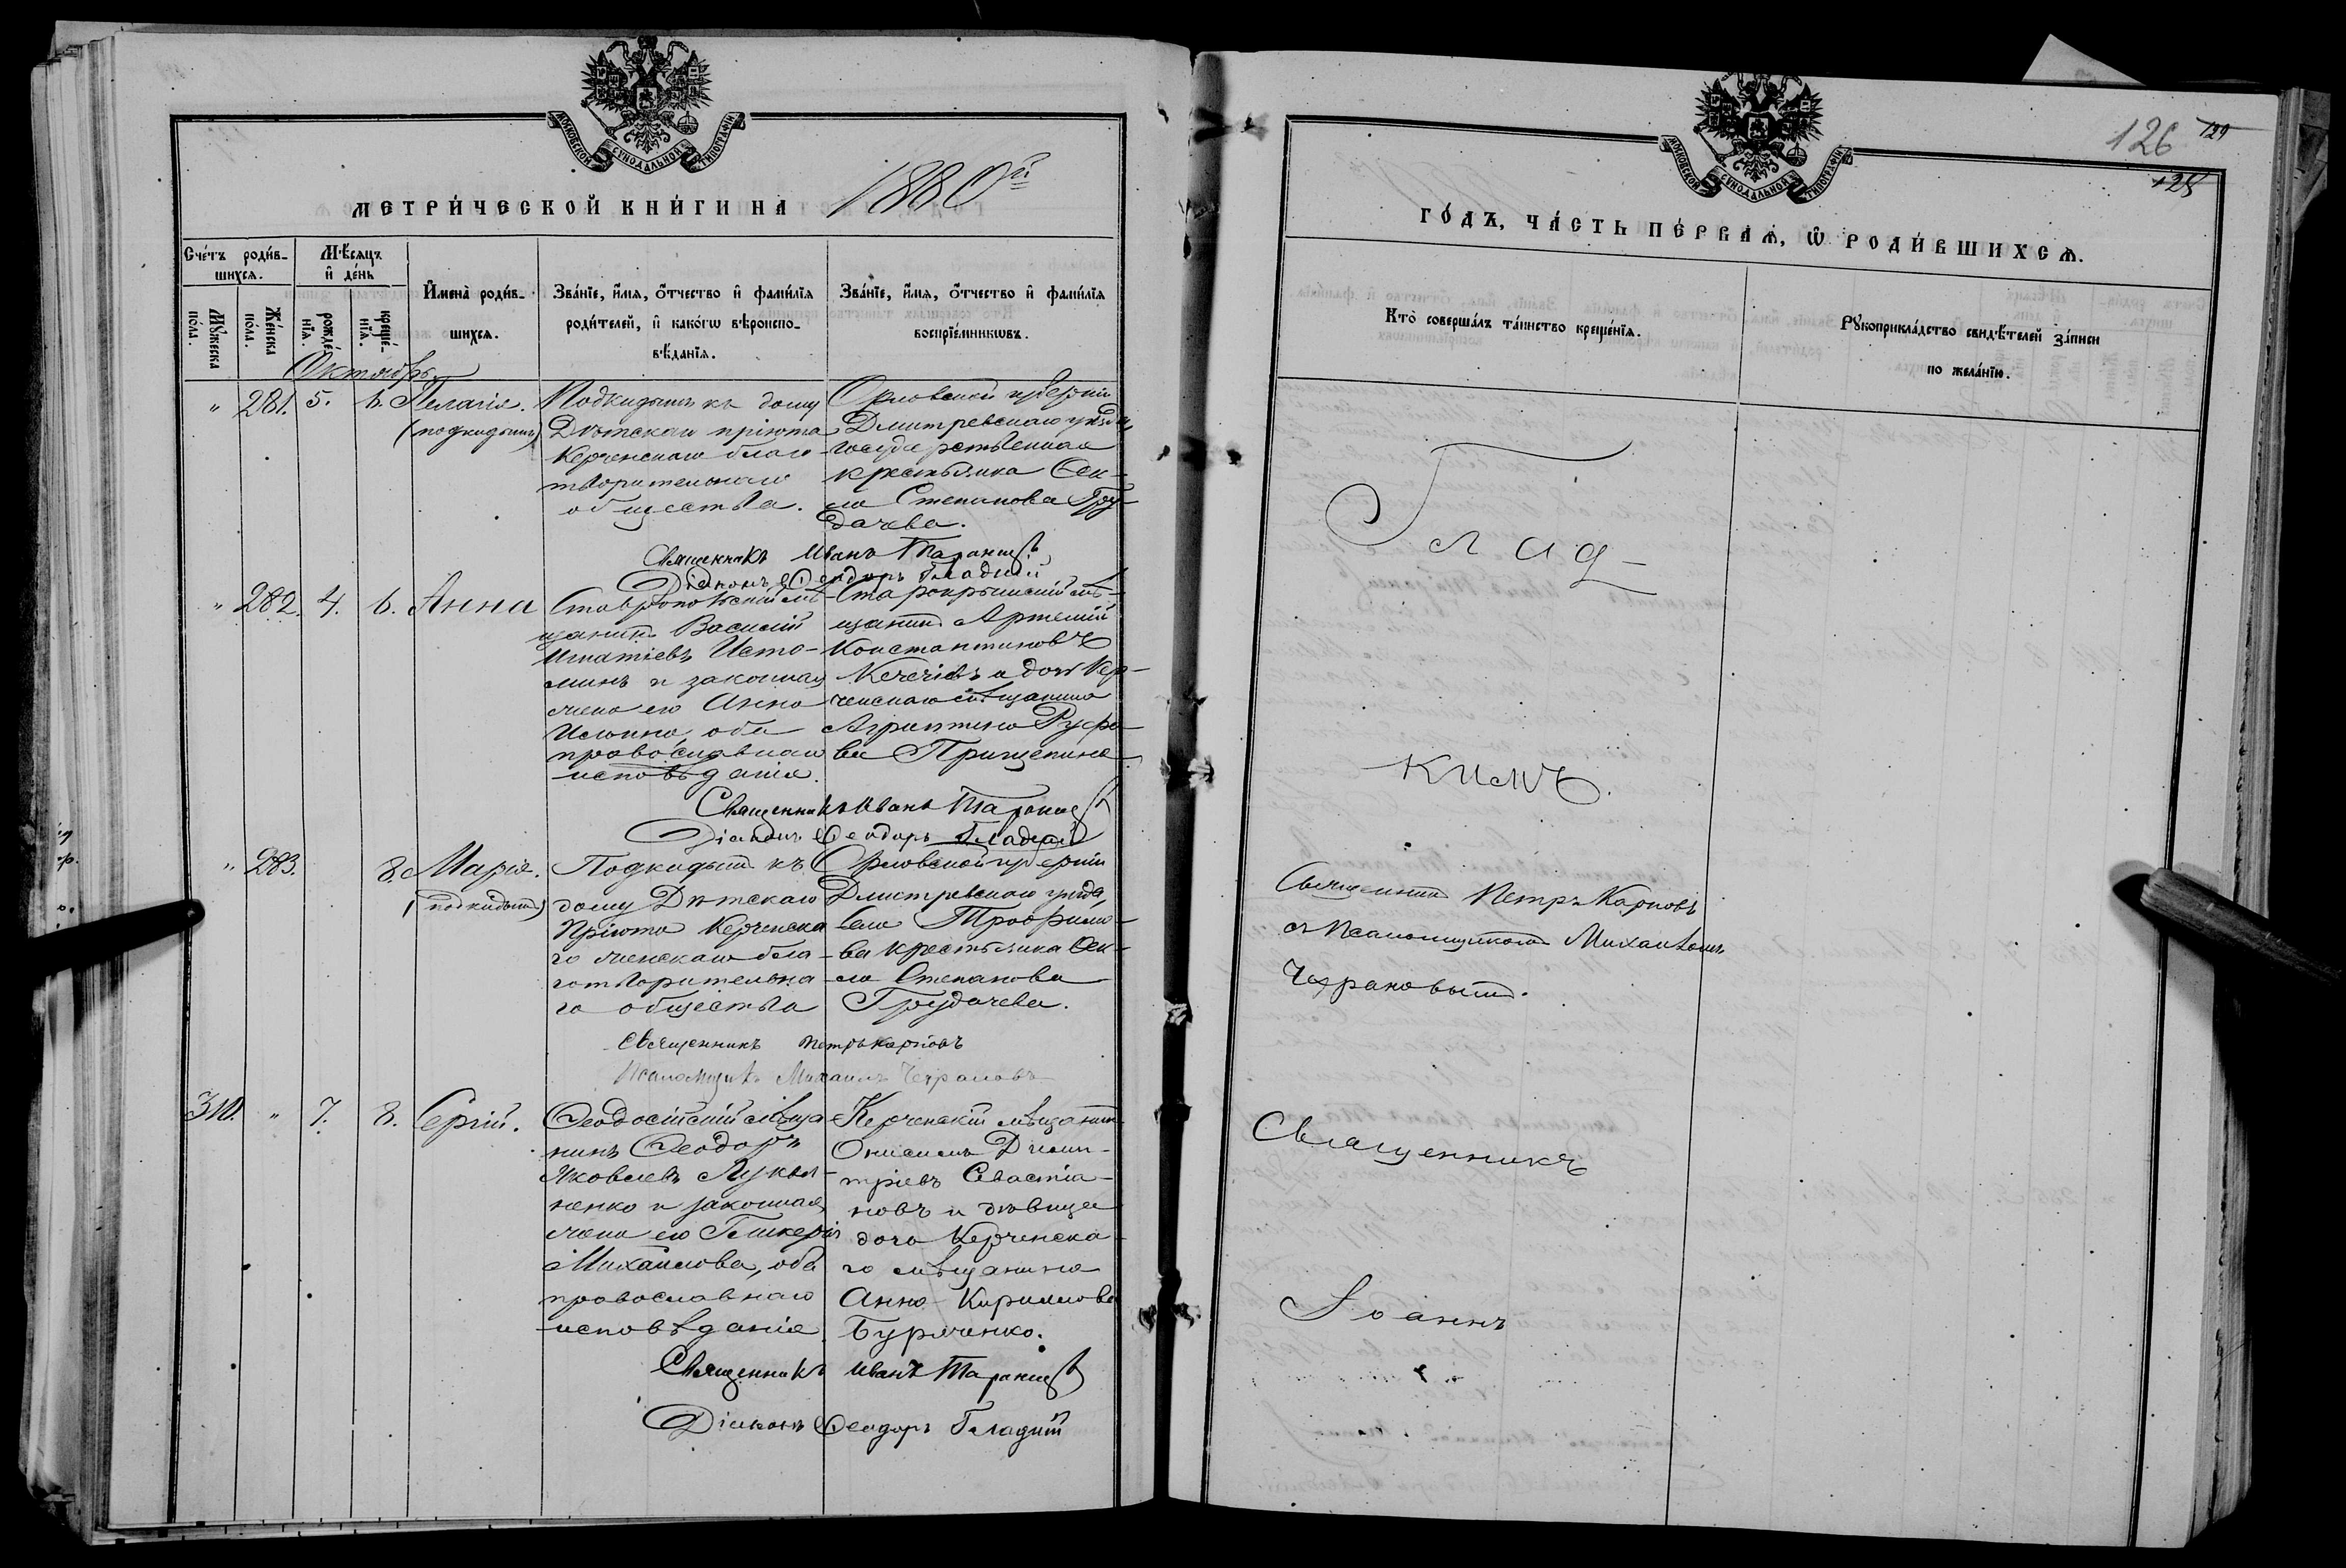 МОСКОВСКОЙ СУНОДАЛЬНОЙ ТИПОГРАФІИ
МЕТРИЧЕСКОЙ КНИГИ НА 1880й
Счетъ родив-
шихся.
Мѣсяцъ
и день
Мужеска
пола.
Женска
пола.
рожде-
нія.
креще-
нія.
Имена родив-
шихся.
Званіе, имя, отчество и фамилія
родителей, и какогω вѣроиспо-
вѣданія.
Званіе, имя, отчество и фамилія
воспріемниковъ.
Октябрь
" 281. 5. 6. Пелагія.
(подкидышъ)
Подкидышъ къ дому
Дѣтскаго пріюта
Керченскаго благо-
творительнаго
общества.
Орловской губерніи
Дмитревскаго уѣзда,
государственная
крестьянка Ѳек-
ла Степанова Гру-
дачева.
Священникъ Иванъ
Діаконъ Ѳеодоръ Гладкій
" 282. 4. 6. Анна
Ставропольскій мѣ-
щанинъ Василій
Игнатіевъ Исто-
минъ и законная
жена его Анна
Ильина, оба
православнаго
исповѣданія.
Старокрымскій мѣ-
щанинъ Артемій
Константиновъ
и дочь Кер-
ченскаго мѣщанина
Агрипина Руфо-
ва Прищепина
Священникъ Иванъ
Діаконъ Ѳеодоръ Гладкій
" 283. 8. Марія.
(подкидышъ)
Подкидышъ къ
дому Дѣтскаго
Пріюта Керченска-
го женскаго бла-
готворительна-
го общества
Орловской губерніи
Дмитревскаго уѣзда,
села Трофимо-
ва крестьянка Ѳек-
ла Степанова
Грудачева.
Священникъ Петръ Карповъ
Псаломщикъ Михаилъ
310. " 7. 8. Сергій.
Ѳеодосійскій мѣща-
нинъ Ѳеодоръ
Яковлевъ Лукья-
ненко и законная
жена его Гликерія
Михайлова, оба
православнаго
исповѣданія
Керченскій мѣщанинъ
Онисимъ Дими-
тріевъ Севастіа-
новъ и дѣвица
дочь Керченска-
го мѣщанина
Анна Кириллова
Буряченко.
Священникъ Иванъ
Діаконъ Ѳеодоръ Гладкій
МОСКОВСКОЙ СУНОДАЛЬНОЙ ТИПОГРАФІИ
126
129
125
ГОДЪ, ЧАСТЬ ПЕРВАЯ, Ѡ РОДИВШИХСЯ.
Кто совершалъ таинство крещенія.
Рукоприкладство свидѣтелей записи
по желанію.
Глад-
кимъ.
Священникъ Петръ Карповъ
съ Псаломщикомъ Михаиломъ
Священникъ
Іоаннъ